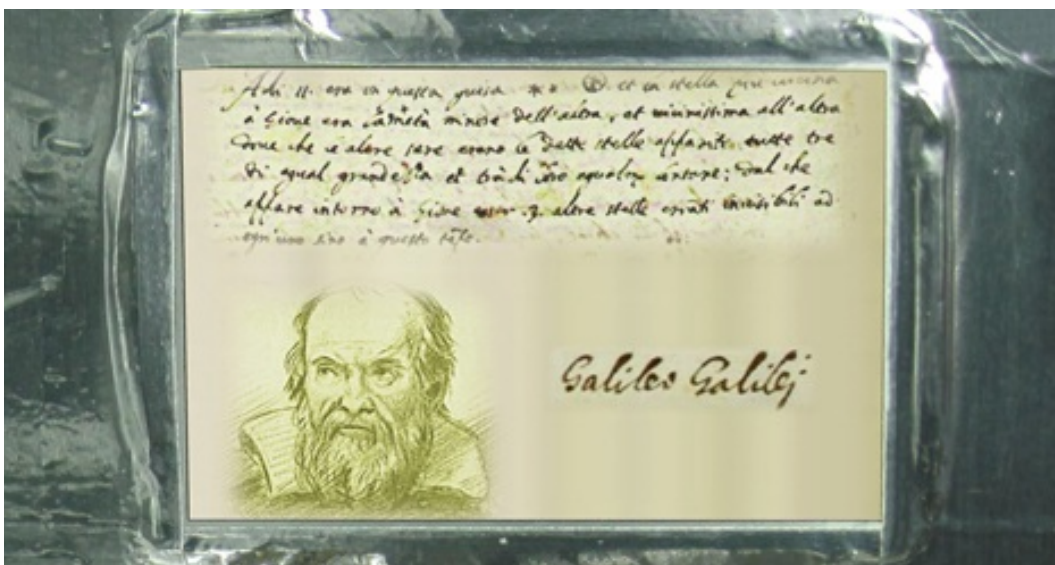 Adi 11. era in questa guisa ** et la stella più vicina
à Giove era la metà minore dell'altra, et vicinissima all'altra
dove che le altre sere erano le dette stelle apparite tutte tre
di egual grandezza et trà di loro egualm. lontane; dal che
appare intorno à Giove esser .3. altre stelle erranti invisibili ad
ogn'uno sino à questo
Galileo Galilej